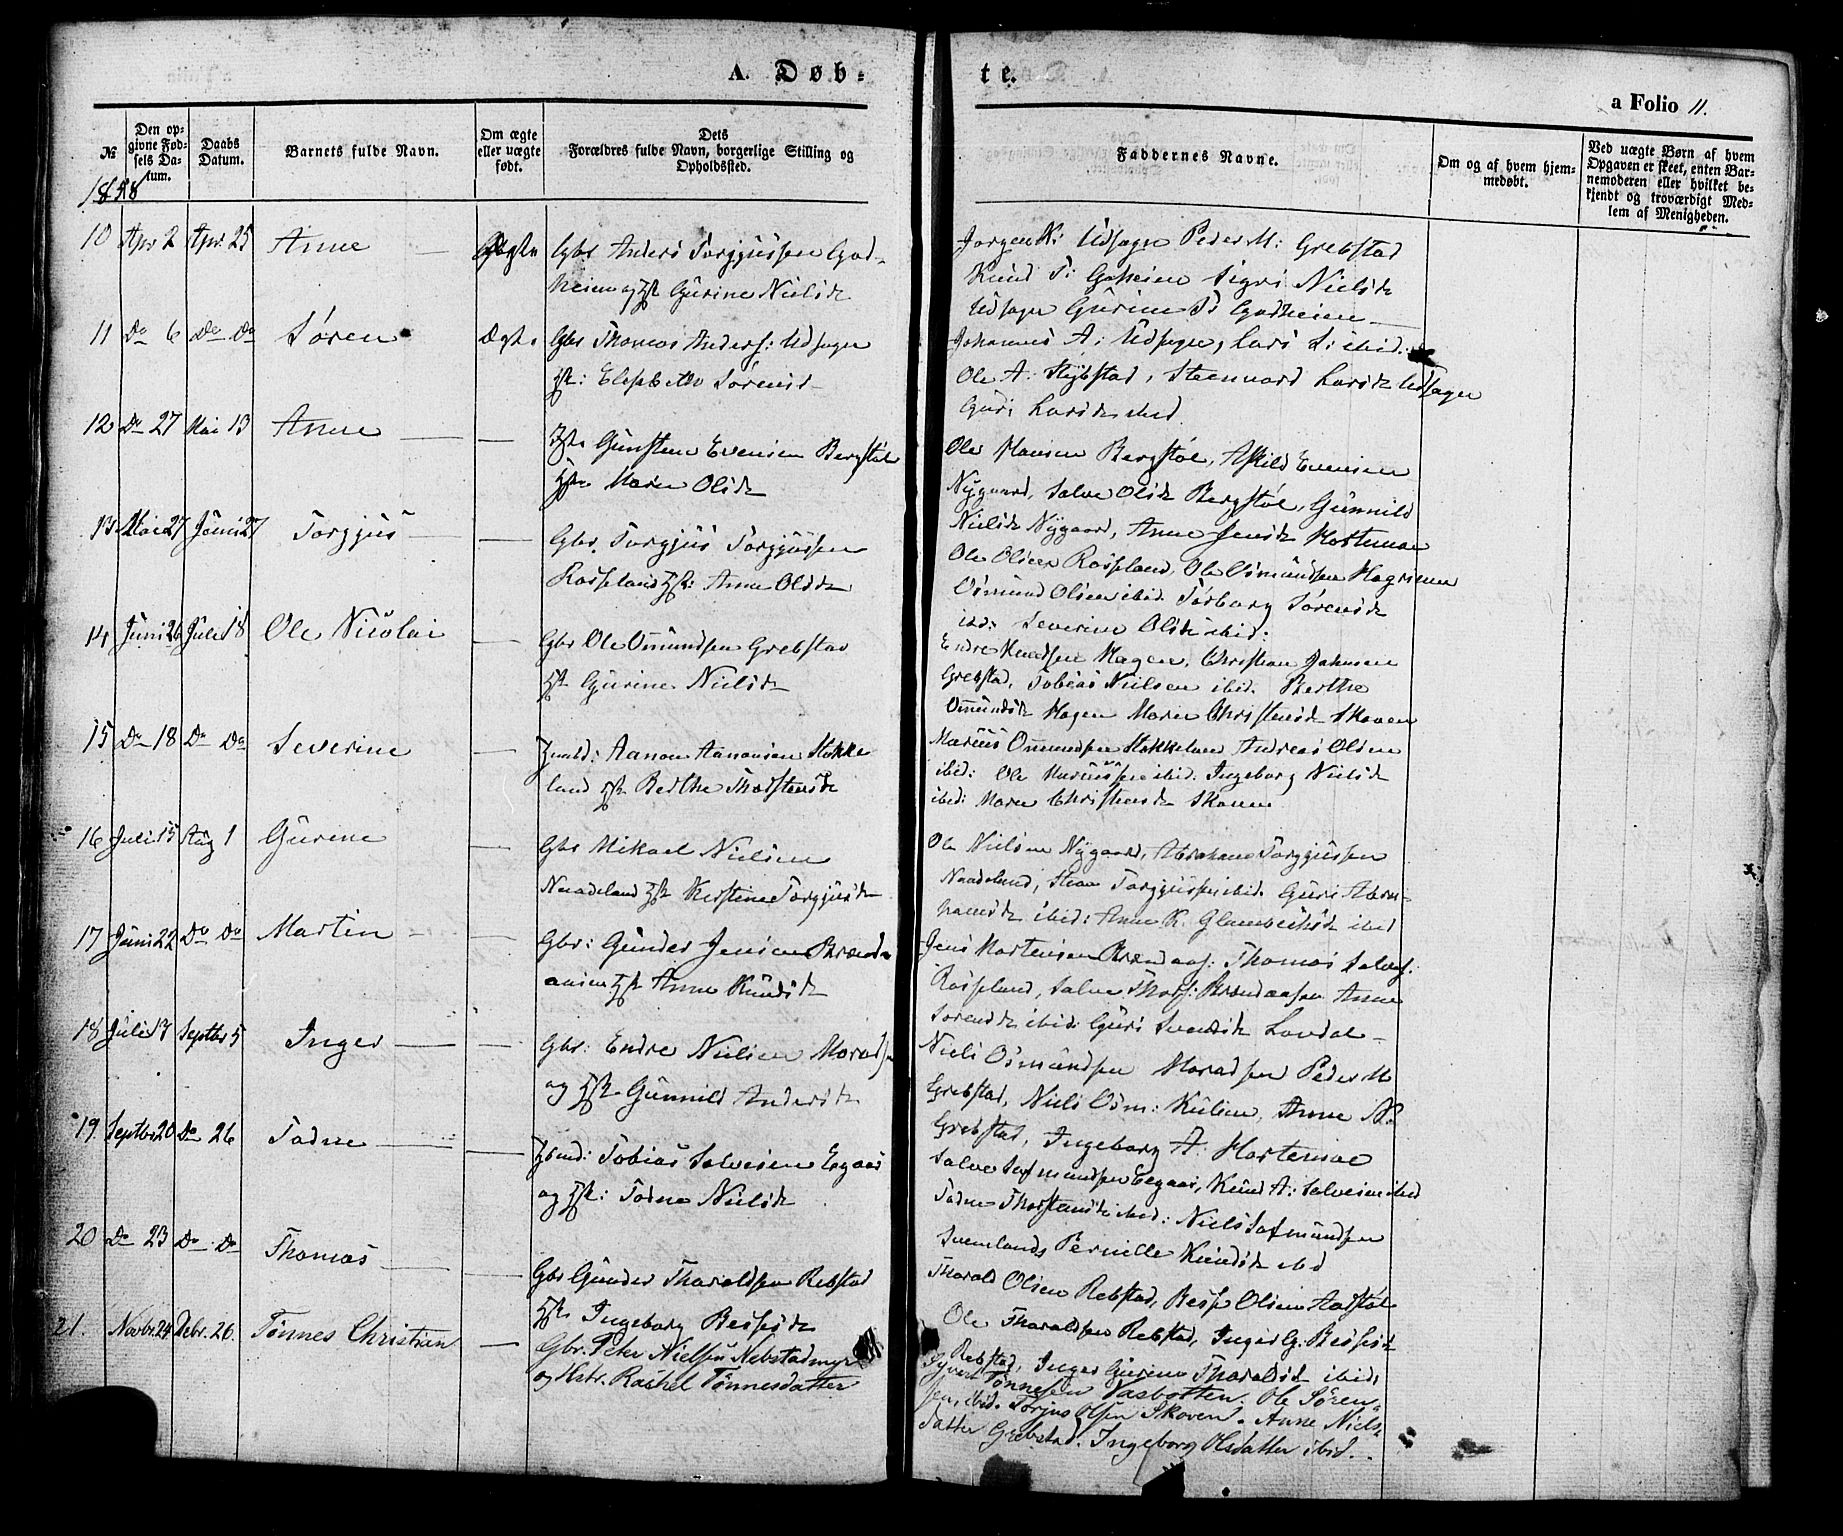 A. Døb-
te.
a Folio 11.
№
Den op-
givne Fød-
sels Da-
tum.
Daabs
Datum.
Barnets fulde Navn.
Om ægte
eller uægte
født.
Dets
Forældres fulde Navn, borgerlige Stilling og
Opholdssted.
Faddernes Navne.
Om og af hvem hjem-
medøbt.
Ved uægte Børn af hvem
Opgaven er skeet, enten Bar-
nemoderen eller hvilket be-
kjendt og troværdigt Med-
lem af Menigheden.
1858
10 Apr 2 Apr. 25 Anne — Ægte Gbr Anders Torgjussen God-
heien og Hst Gurine Nielsdt
Jørgen N: Udsogn Peder M: Grebstad
Knud T: Godheien Sigri Nielsdt
Udsogn Gurine T: Godheien
11 Do 6 Do Do Søren Ægte Gbr Thomas Anders: Udsogn
Hst: Elisabeth Sørensd
Johannes A: Udsogn, Lars L: ibid.
Ole A: , Larsdt Udsogn
Guri Larsdt ibid
12 Do 27 Mai 13 Anne — — Gunsten Evensen Bergstøl
Hst Maren Olsdt
Ole Hansen Bergstøl, Askild Evensen
Nygaard, Salve Olsdt Bergstøl, Gunnild
Nielsdt Nygaard, Anne Jensdt Hortemoe
13 Mai 27 Juni 27 Torgjus — — Gbr. Torgjus Torgjussen
Rosseland Hst: Anne Olsdt
Ole Olsen Rosseland, Ole Osmundsen
Osmund Olsen ibid. Torborg Sørensdt
ibd: Severine Olsdt ibid:
14 Juni 26 Juli 18 Ole Nicolai — Gbr Ole Omundsen Grebstad
Hst Gurine Nielsdt
Endre Knudsen Hagen, Christian Johnsen
Grebstad, Tobias Nielsen ibid. Berthe
Omundsdt Hagen Maren Christensdt Skoven
15 Do 18 Do Do Severine — Aanon Aanonsen Stokke
land Hst Berthe Thorstensdt
Marius Ommundsen Stokkeland Andreas Olsen
ibid: Ole ibid. Ingeborg Nielsdt
ibid: Maren Christensdt Skoven
16 Juli 15 Aug 1 Gurine — Gbr Mikael Nielsen
Naadeland Hst Kirstine Torgjusdt
Ole Nielsen Nygaard, Abraham Torgjussen
Naadeland, Torgjussen ibid. Guri Abra-
hamsdt ibid: Anne K. ibid
17 Juni 22 Do Do Martin — — Gbr: Gunder Jensen Brænd-
aasen Hst Anne Knudsdt
Jens Mortensen Brændaas: Thomas Salves:
Rosseland, Salve Thors: Brændaasen Anne
Sørensdt ibid: Guri Svensdt Londal
18 Juli 13 Septbr 5 Inger — — Gbr: Endre Nielsen
og Hst Gunnild Andersdt
Niels Osmundsen Peder M
Grebstad, Niels Osm: , Anne N.
Grebstad, Ingeborg A: Hortemoe
19 Septbr 20 Do 26 Tadne — — Tobias Salvesen Eegaas
og Hst: Tadne Nielsdt
Salve Eegaas, Knud A: Salvesen ibid
Tadne Thorstensdt ibid: Niels
Pernille Knudsdt ibid
20 Do 23 Do Do Thomas — — Gbr Gunder Tharaldsen Rebstad
Hst Ingeborg Bessesdt
Tharald Olsen Rebstad, Besse Olsen
Ole Tharaldsen Rebstad, Inger G. Bessesdt
Rebstad, Inger Gurine Tharaldsdt ibid.
21. Novbr. 24 Debr. 26. Tønnes Christian — Gbr. Peter Nielsen Nebstadmyr
og Hstr. Rachel Tønnesdatter
Syvert Tønnesen Vasbotten. Ole Søren-
sen, ibid. Torjus Olsen Skoven. Anne Niels-
datter Grebstad. Ingeborg Olsdatter ibid.